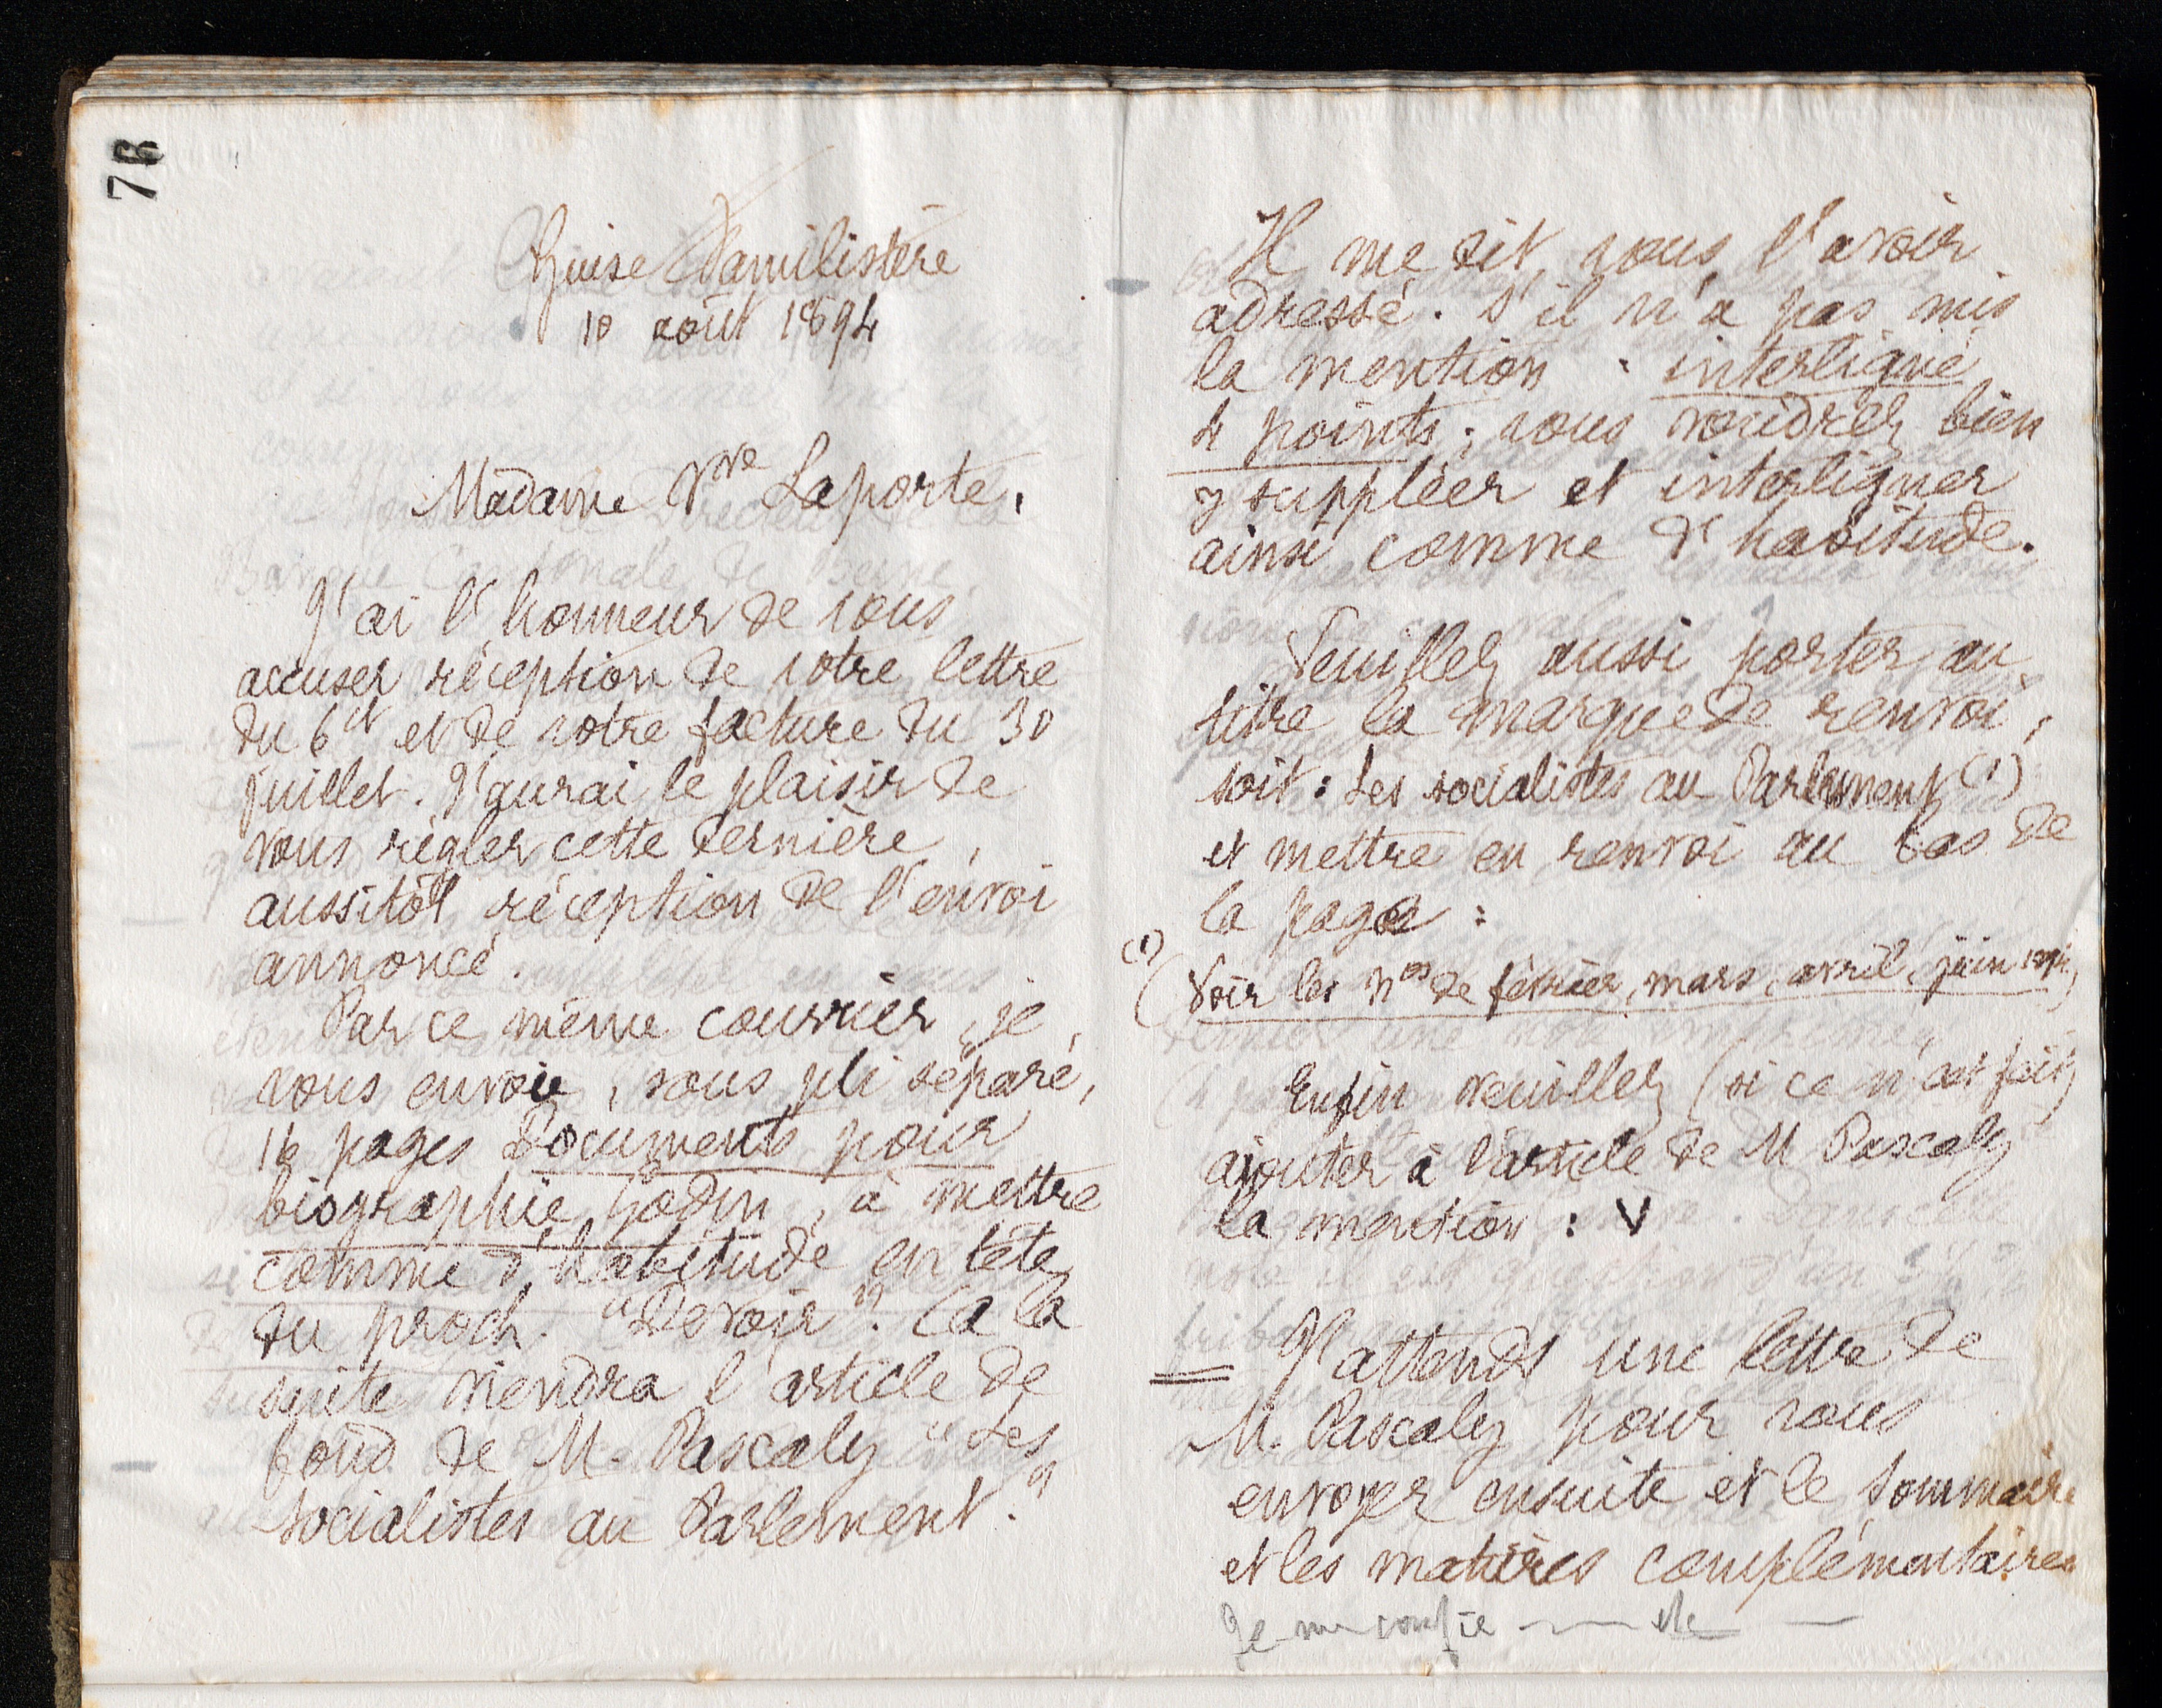 78
Guise Familistère
10 août 1894
Madame Vve Laporte,
J'ai l'honneur de vous
accuser réception de votre lettre
du 6 ct et de votre facture du 30
juillet. J'aurai le plaisir de
vous régler cette dernière,
aussitôt réception de l'envoi
annoncé.
Par ce même courrier, je
vous envoie, sous pli séparé,
16 pages Documents pour
biographie Godin, à mettre
comme d'habitude en tête
du proch. "Devoir". (A la
suite viendra l'article de
fond de M. Pascaly "Les
socialistes au Parlement."
Il me dit vous l'avoir
adressé. S'il n'a pas mis
la mention : interligné
4 points; vous voudrez bien
y suppléer et interligner
ainsi comme d'habitude.
Veuillez aussi porter au
titre la marque de renvoi,
soit : Les socialistes au Parlement (1)
et mettre en renvoi au bas de
la page :
(1) (Voir les nos de février, mars, avril, juin
Enfin veuillez (si ce n'est fait)
ajouter à l'article de M Pascaly
la mention : V
= J'attends une lettre de
M. Pascaly pour vous
envoyer ensuite et le sommaire
et les matières complémentaires
Je me confie